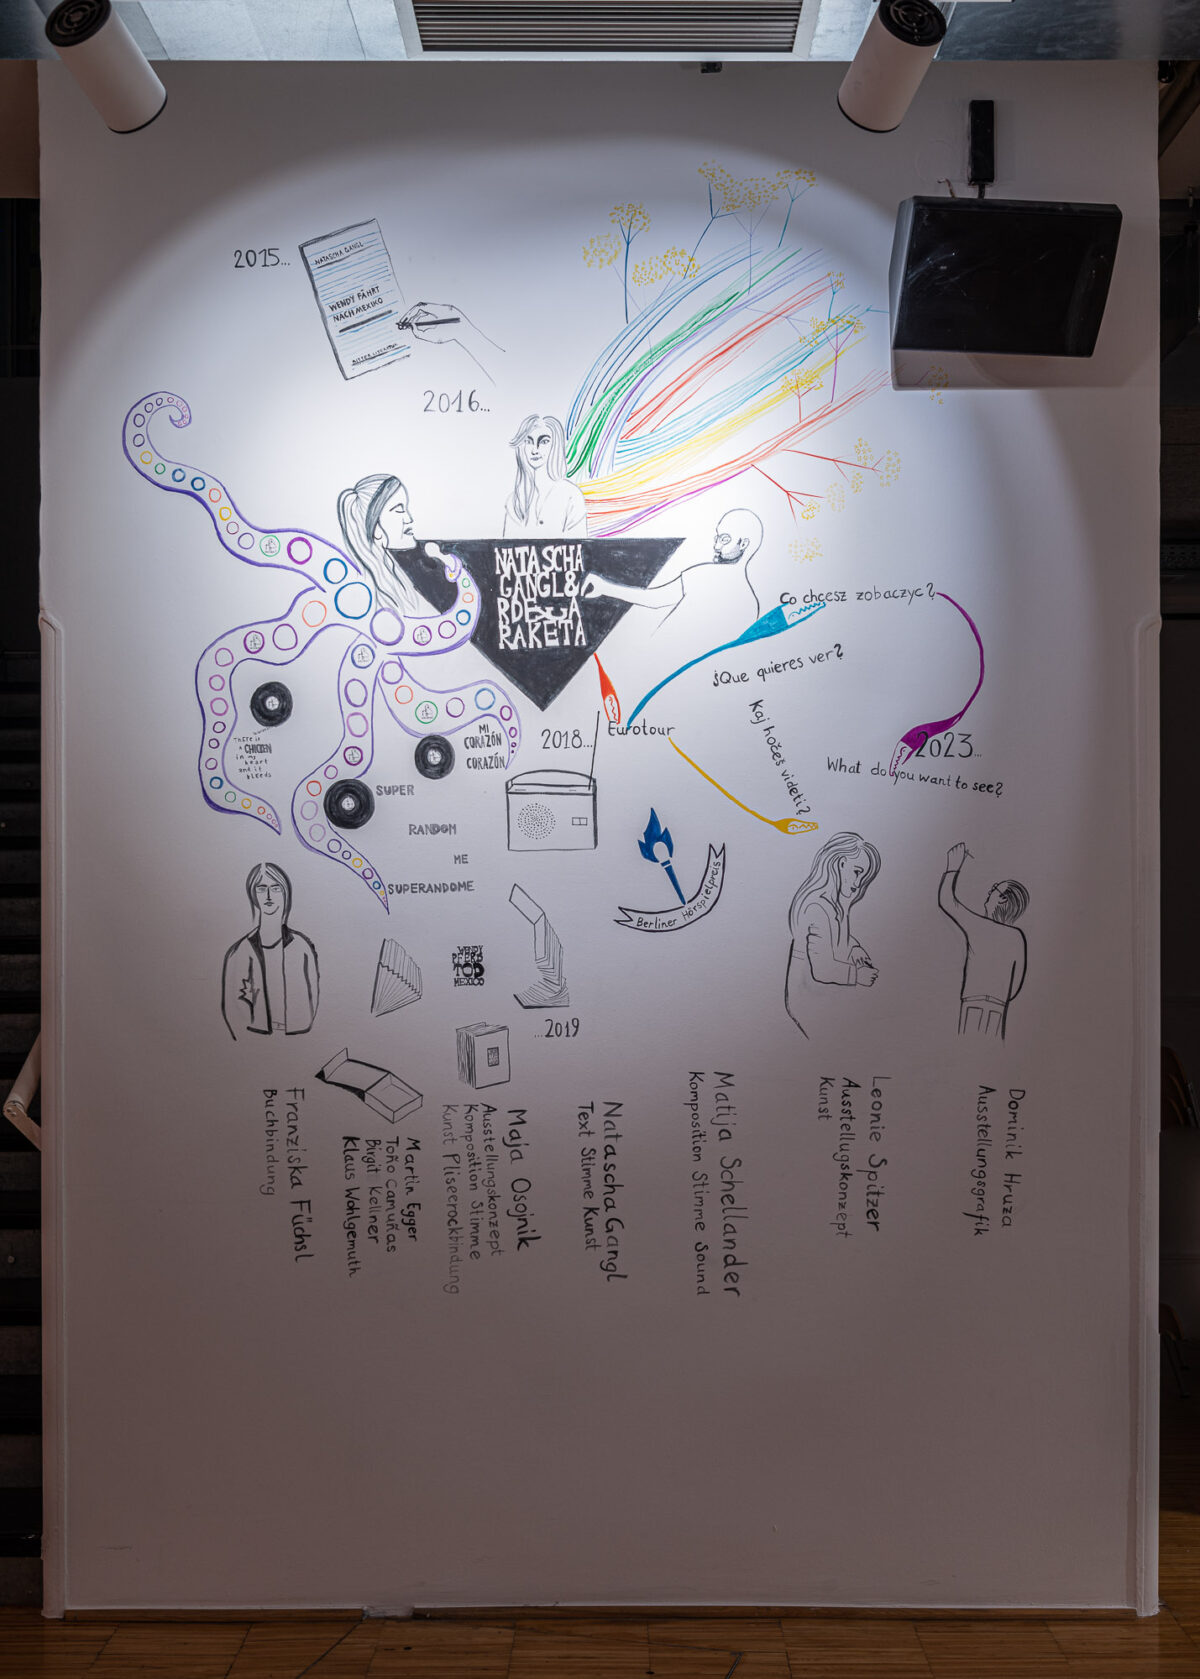 2015...
NATASCHA GANGL
WENDY FÄHRT
NACH MEXIKO
RITTER LITERATUR
2016...
NATASCHA
GANGL &
RDEČA
RAKETA
Co chcesz zobaczyć?
¿Que quieres ver?
Kaj hočeš videti?
2023...
What do you want to see?
Eurotour
2018...
There is
a CHICKEN
in my
heart
and it
bleeds
MI
CORAZÓN
CORAZÓN
SUPER
RANDOM
ME
SUPERANDOME
Berliner Hörspielpreis
WENDY
PFERD
TOD
MEXICO
...2019
Franziska Füchsl
Buchbindung
Martin Egger
Toño Camuñas
Birgit Kellner
Klaus Wohlgemuth
Maja Osojnik
Ausstellungskonzept
Komposition Stimme
Kunst Pliseerockbindung
Natascha Gangl
Text Stimme Kunst
Matija Schellander
Komposition Stimme Sound
Leonie Spitzer
Ausstellugskonzept
Kunst
Dominik Hruza
Ausstellungsgrafik